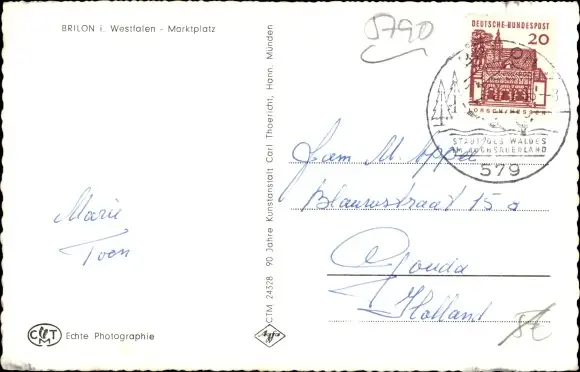 BRILON i. Westfalen - Marktplatz
5790
DEUTSCHE·BUNDESPOST
20
LORSCH/HESSEN
STADT DES WALDES
IM HOCHSAUERLAND
579
Marie
Toon
CTM 24328 90 Jahre Kunstanstalt Carl Thoericht, Hann. Münden
Fam M. Appel
Blauwstraat 15 a
Gouda
Holland
CTM Echte Photographie